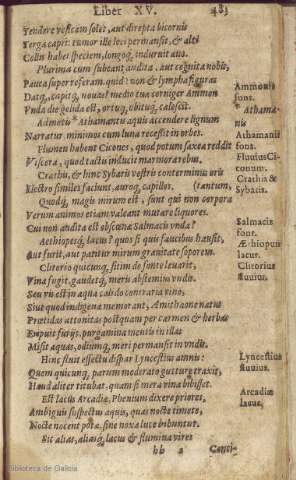 Liber XV. 483
Tendere vesicam solet, aut direpta bicornis
Terga capri: tumor ille loci permansit, & alti
Collis habet speciem, longoq́; induruit æuo.
Plurima cum subeant, audita, aut cognita nobis,
Pauca super referam. quid? non & lympha figuras
Datq́;, capitq́; nouas? medio tua corniger Ammon
Vnda die gelida est, ortuq́;, obituq́; calescit.
Admotis Athamantis aquis accendere lignum
Narratur, minimos cum luna recessit in orbes.
Flumen habent Cicones, quod potum saxea reddit
Viscera, quod tactu inducit marmora rebus.
Crathis, & hinc Sybaris vestris conterminus oris
Electro similes faciunt, auroq́; capillos. (tantum,
Quodq́; magis mirum est, sunt qui non corpora
Verum animos etiam valeant mutare liquores.
Cui non audita est obscœnæ Salmacis vnda?
Aethiopesq́; lacus? quos si quis faucibus hausit,
Aut furit, aut patitur mirum grauitate soporem.
Clitorio quicunq́; sitim de fonte leuarit,
Vina fugit, gaudetq́; meris abstemius vndis.
Seu vis est in aqua calido contraria vino,
Siue quod indigenæ memorant, Amithaone natus
Prœtidas attonitas postquam per carmen & herbas
Eripuit furijs, purgamina mentis in illas
Misit aquas, odiumq́; meri permansit in vndis.
Huic fluit effectu dispar Lyncestius amnis:
Quem quicunq́; parum moderato gutture traxit,
Haud aliter titubat, quam si mera vina bibisset.
Est lacus Arcadiæ, Pheneum dixere priores,
Ambiguis suspectus aquis, quas nocte timeto,
Nocte nocent potæ, sine noxa luce bibuntur.
Sic aliæ, aliasq́; lacus & flumina vires
hh 2 Conci-
Ammonis
fons.
* Athama-
nis
Athamanis
fons.
Fluuius Ci-
conum.
Crathis &
Sybaris.
Salmacis
fons.
Aethiopum
lacus.
Clitorius
fluuius.
Lyncestius
fluuius.
Arcadiæ
lacus.
Biblioteca de Galicia